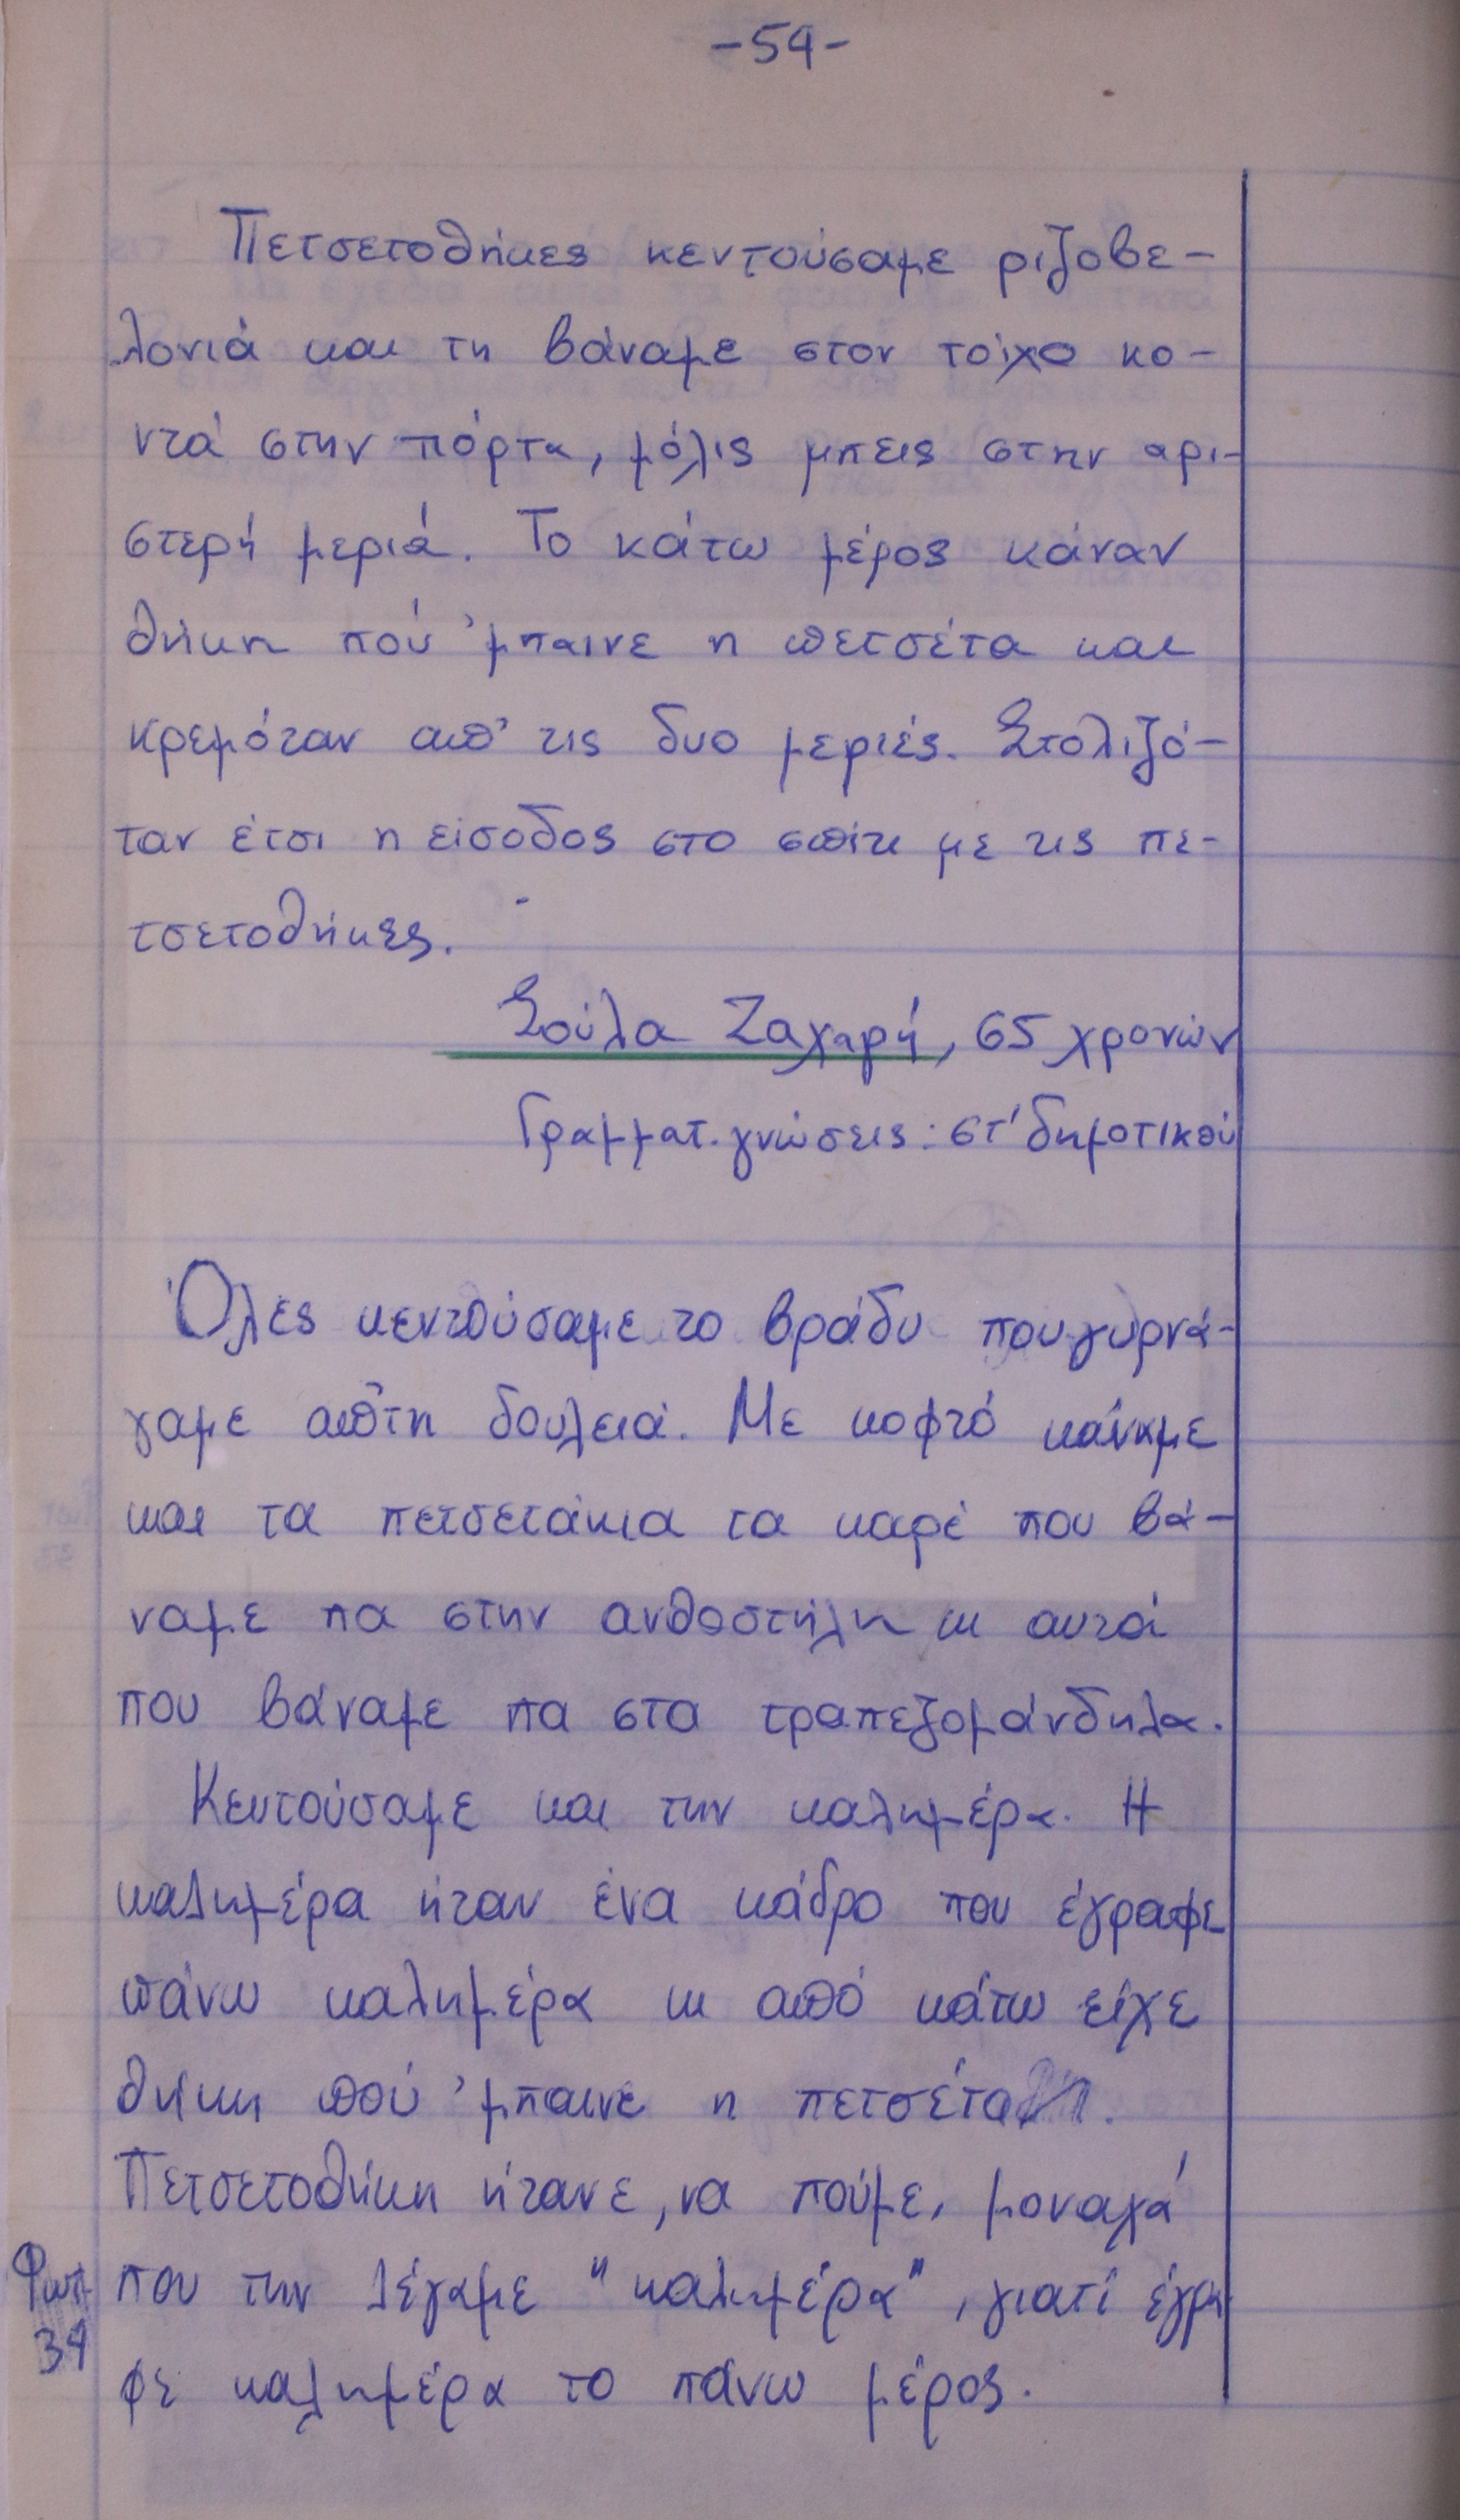 -54-
Πετσετοθήκες κεντούσαμε ριζοβε-
λονιά και τη βάναμε στον τοίχο κο-
ντά στην πόρτα, μόλις μπεις στην αρι-
στερή μεριά. Το κάτω μέρος κάναν
θήκη πού 'μπαινε η πετσέτα και
κρεμόταν απ' τις δυο μεριές. Στολιζό-
ταν έτσι η είσοδος στο σπίτι με τις πε-
τσετοθήκες.
Σούλα Ζαχαρή, 65 χρονών
Γραμματ. γνώσεις: στ' δημοτικού
Όλες κεντούσαμε το βράδυ που γυρνά-
γαμε απ' τη δουλειά. Με κοφτό κάναμε
και τα πετσετάκια τα καρέ που βά-
ναμε πα στην ανθοστήλη κι αυτά
που βάναμε πα στα τραπεζομάνδηλα.
Κεντούσαμε και την καλημέρα. Η
καλημέρα ήταν ένα κάδρο που έγραφε
πάνω καλημέρα κι από κάτω είχε
θήκη πού 'μπαινε η πετσέτα.
Πετσετοθήκη ήτανε, να πούμε, μοναχά
που την λέγαμε "καλημέρα", γιατί έγρα
φε καλημέρα το πάνω μέρος.
Φωτ.
34